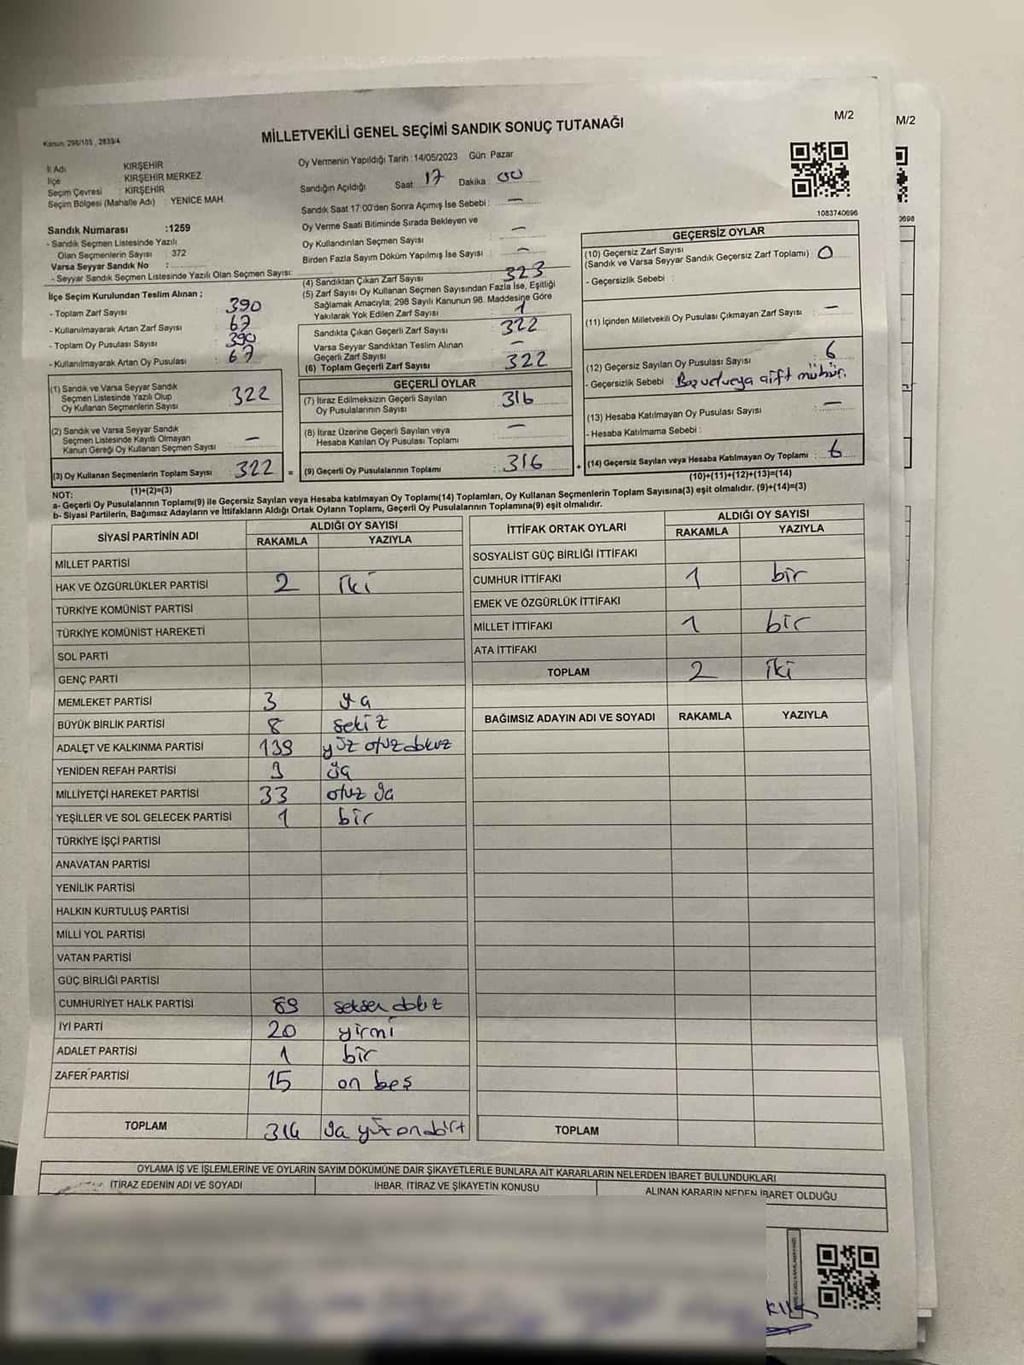 Kanun: 298/105, 2839/4
MİLLETVEKİLİ GENEL SEÇİMİ SANDIK SONUÇ TUTANAĞI
M/2
M/2
İl Adı KIRŞEHİR
İlçe KIRŞEHİR MERKEZ
Seçim Çevresi : KIRŞEHİR
Seçim Bölgesi (Mahalle Adı) YENİCE MAH.
Sandık Numarası :1259
- Sandık Seçmen Listesinde Yazılı
Olan Seçmenlerin Sayısı : 372
Varsa Seyyar Sandık No :
- Seyyar Sandık Seçmen Listesinde Yazılı Olan Seçmen Sayısı:
İlçe Seçim Kurulundan Teslim Alınan ;
- Toplam Zarf Sayısı 390
- Kullanılmayarak Artan Zarf Sayısı 67
- Toplam Oy Pusulası Sayısı 390
- Kullanılmayarak Artan Oy Pusulası : 67
(1) Sandık ve Varsa Seyyar Sandık
Seçmen Listesinde Yazılı Olup
Oy Kullanan Seçmenlerin Sayısı 322
(2) Sandık ve Varsa Seyyar Sandık
Seçmen Listesinde Kayıtlı Olmayan
Kanun Gereği Oy Kullanan Seçmen Sayısı –
(3) Oy Kullanan Seçmenlerin Toplam Sayısı 322 =
(1)+(2)=(3)
Oy Vermenin Yapıldığı Tarih :14/05/2023 Gün Pazar
Sandığın Açıldığı Saat 17 Dakika 00
Sandık Saat 17:00'den Sonra Açımış İse Sebebi : –
Oy Verme Saati Bitiminde Sırada Bekleyen ve
Oy Kullandırılan Seçmen Sayısı –
Birden Fazla Sayım Döküm Yapılmış İse Sayısı : –
(4) Sandıktan Çıkan Zarf Sayısı 323
(5) Zarf Sayısı Oy Kullanan Seçmen Sayısından Fazla İse, Eşitliği
Sağlamak Amacıyla; 298 Sayılı Kanunun 98. Maddesine Göre
Yakılarak Yok Edilen Zarf Sayısı : 1
Sandıkta Çıkan Geçerli Zarf Sayısı : 322
Varsa Seyyar Sandıktan Teslim Alınan
Geçerli Zarf Sayısı –
(6) Toplam Geçerli Zarf Sayısı 322
GEÇERLİ OYLAR
(7) İtiraz Edilmeksizin Geçerli Sayılan
Oy Pusulalarının Sayısı 316
(8) İtiraz Üzerine Geçerli Sayılan veya
Hesaba Katılan Oy Pusulası Toplamı –
(9) Geçerli Oy Pusulalarının Toplamı : 316 +
1083740696
GEÇERSİZ OYLAR
(10) Geçersiz Zarf Sayısı
(Sandık ve Varsa Seyyar Sandık Geçersiz Zarf Toplamı) : 0
- Geçersizlik Sebebi :
(11) İçinden Milletvekili Oy Pusulası Çıkmayan Zarf Sayısı : –
(12) Geçersiz Sayılan Oy Pusulası Sayısı : 6
- Geçersizlik Sebebi çift mühür.
(13) Hesaba Katılmayan Oy Pusulası Sayısı –
- Hesaba Katılmama Sebebi :
(14) Geçersiz Sayılan veya Hesaba Katılmayan Oy Toplamı : 6
(10)+(11)+(12)+(13)=(14)
NOT:
a- Geçerli Oy Pusulalarının Toplamı(9) ile Geçersiz Sayılan veya Hesaba katılmayan Oy Toplamı(14) Toplamları, Oy Kullanan Seçmenlerin Toplam Sayısına(3) eşit olmalıdır. (9)+(14)=(3)
b- Siyasi Partilerin, Bağımsız Adayların ve İttifakların Aldığı Ortak Oyların Toplamı, Geçerli Oy Pusulalarının Toplamına(9) eşit olmalıdır.
SİYASİ PARTİNİN ADI ALDIĞI OY SAYISI
RAKAMLA YAZIYLA
MİLLET PARTİSİ
HAK VE ÖZGÜRLÜKLER PARTİSİ 2 iki
TÜRKİYE KOMÜNİST PARTİSİ
TÜRKİYE KOMÜNİST HAREKETİ
SOL PARTİ
GENÇ PARTİ
MEMLEKET PARTİSİ 3
BÜYÜK BİRLİK PARTİSİ 8 sekiz
ADALET VE KALKINMA PARTİSİ 139 yüz otuz dokuz
YENİDEN REFAH PARTİSİ 3
MİLLİYETÇİ HAREKET PARTİSİ 33 otuz
YEŞİLLER VE SOL GELECEK PARTİSİ 1 bir
TÜRKİYE İŞÇİ PARTİSİ
ANAVATAN PARTİSİ
YENİLİK PARTİSİ
HALKIN KURTULUŞ PARTİSİ
MİLLİ YOL PARTİSİ
VATAN PARTİSİ
GÜÇ BİRLİĞİ PARTİSİ
CUMHURİYET HALK PARTİSİ 89 seksen dokuz
İYİ PARTİ 20 yirmi
ADALET PARTİSİ 1 bir
ZAFER PARTİSİ 15 on beş
TOPLAM 314
İTTİFAK ORTAK OYLARI ALDIĞI OY SAYISI
RAKAMLA YAZIYLA
SOSYALİST GÜÇ BİRLİĞİ İTTİFAKI
CUMHUR İTTİFAKI 1 bir
EMEK VE ÖZGÜRLÜK İTTİFAKI
MİLLET İTTİFAKI 1 bir
ATA İTTİFAKI
TOPLAM 2 iki
BAĞIMSIZ ADAYIN ADI VE SOYADI RAKAMLA YAZIYLA
TOPLAM
OYLAMA İŞ VE İŞLEMLERİNE VE OYLARIN SAYIM DÖKÜMÜNE DAİR ŞİKAYETLERLE BUNLARA AİT KARARLARIN NELERDEN İBARET BULUNDUKLARI
İTİRAZ EDENİN ADI VE SOYADI İHBAR, İTİRAZ VE ŞİKAYETİN KONUSU ALINAN KARARIN NEDEN İBARET OLDUĞU